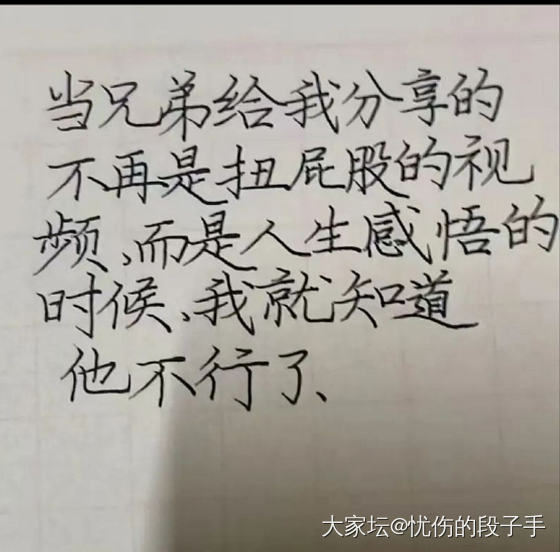 当兄弟给我分享的
不再是扭屁股的视
频、而是人生感悟的
时候、我就知道
他不行了、
大家坛@忧伤的段子手